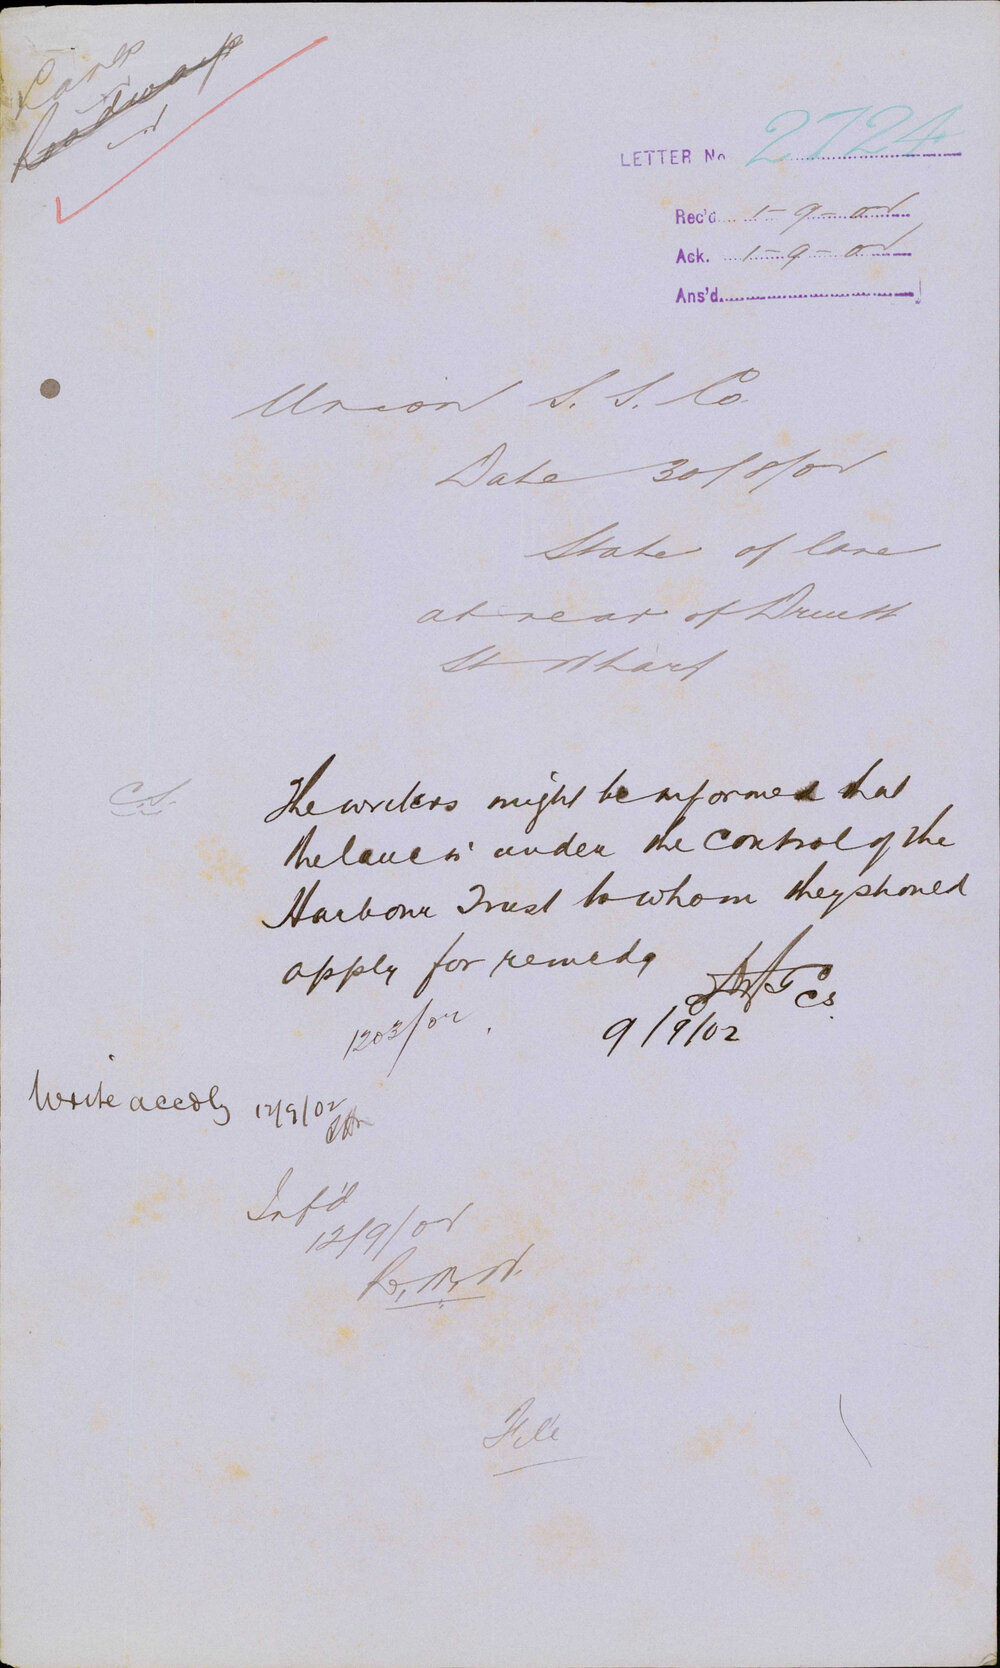 Lane
Roadways
LETTER No 2724
Rec'd 1-9-02
Ack. 1-9-02
Ans'd
Union S. S. Co.
Date 30/8/02
State of lane
at rear of Druitt
St Wharf
C.S.
The writers might be informed that
the lane is under the control of the
Harbour Trust to whom they should
apply for remedy
CS
9/9/02
1203/02
Write accdly 12/9/02
Inf'd
12/9/02
File